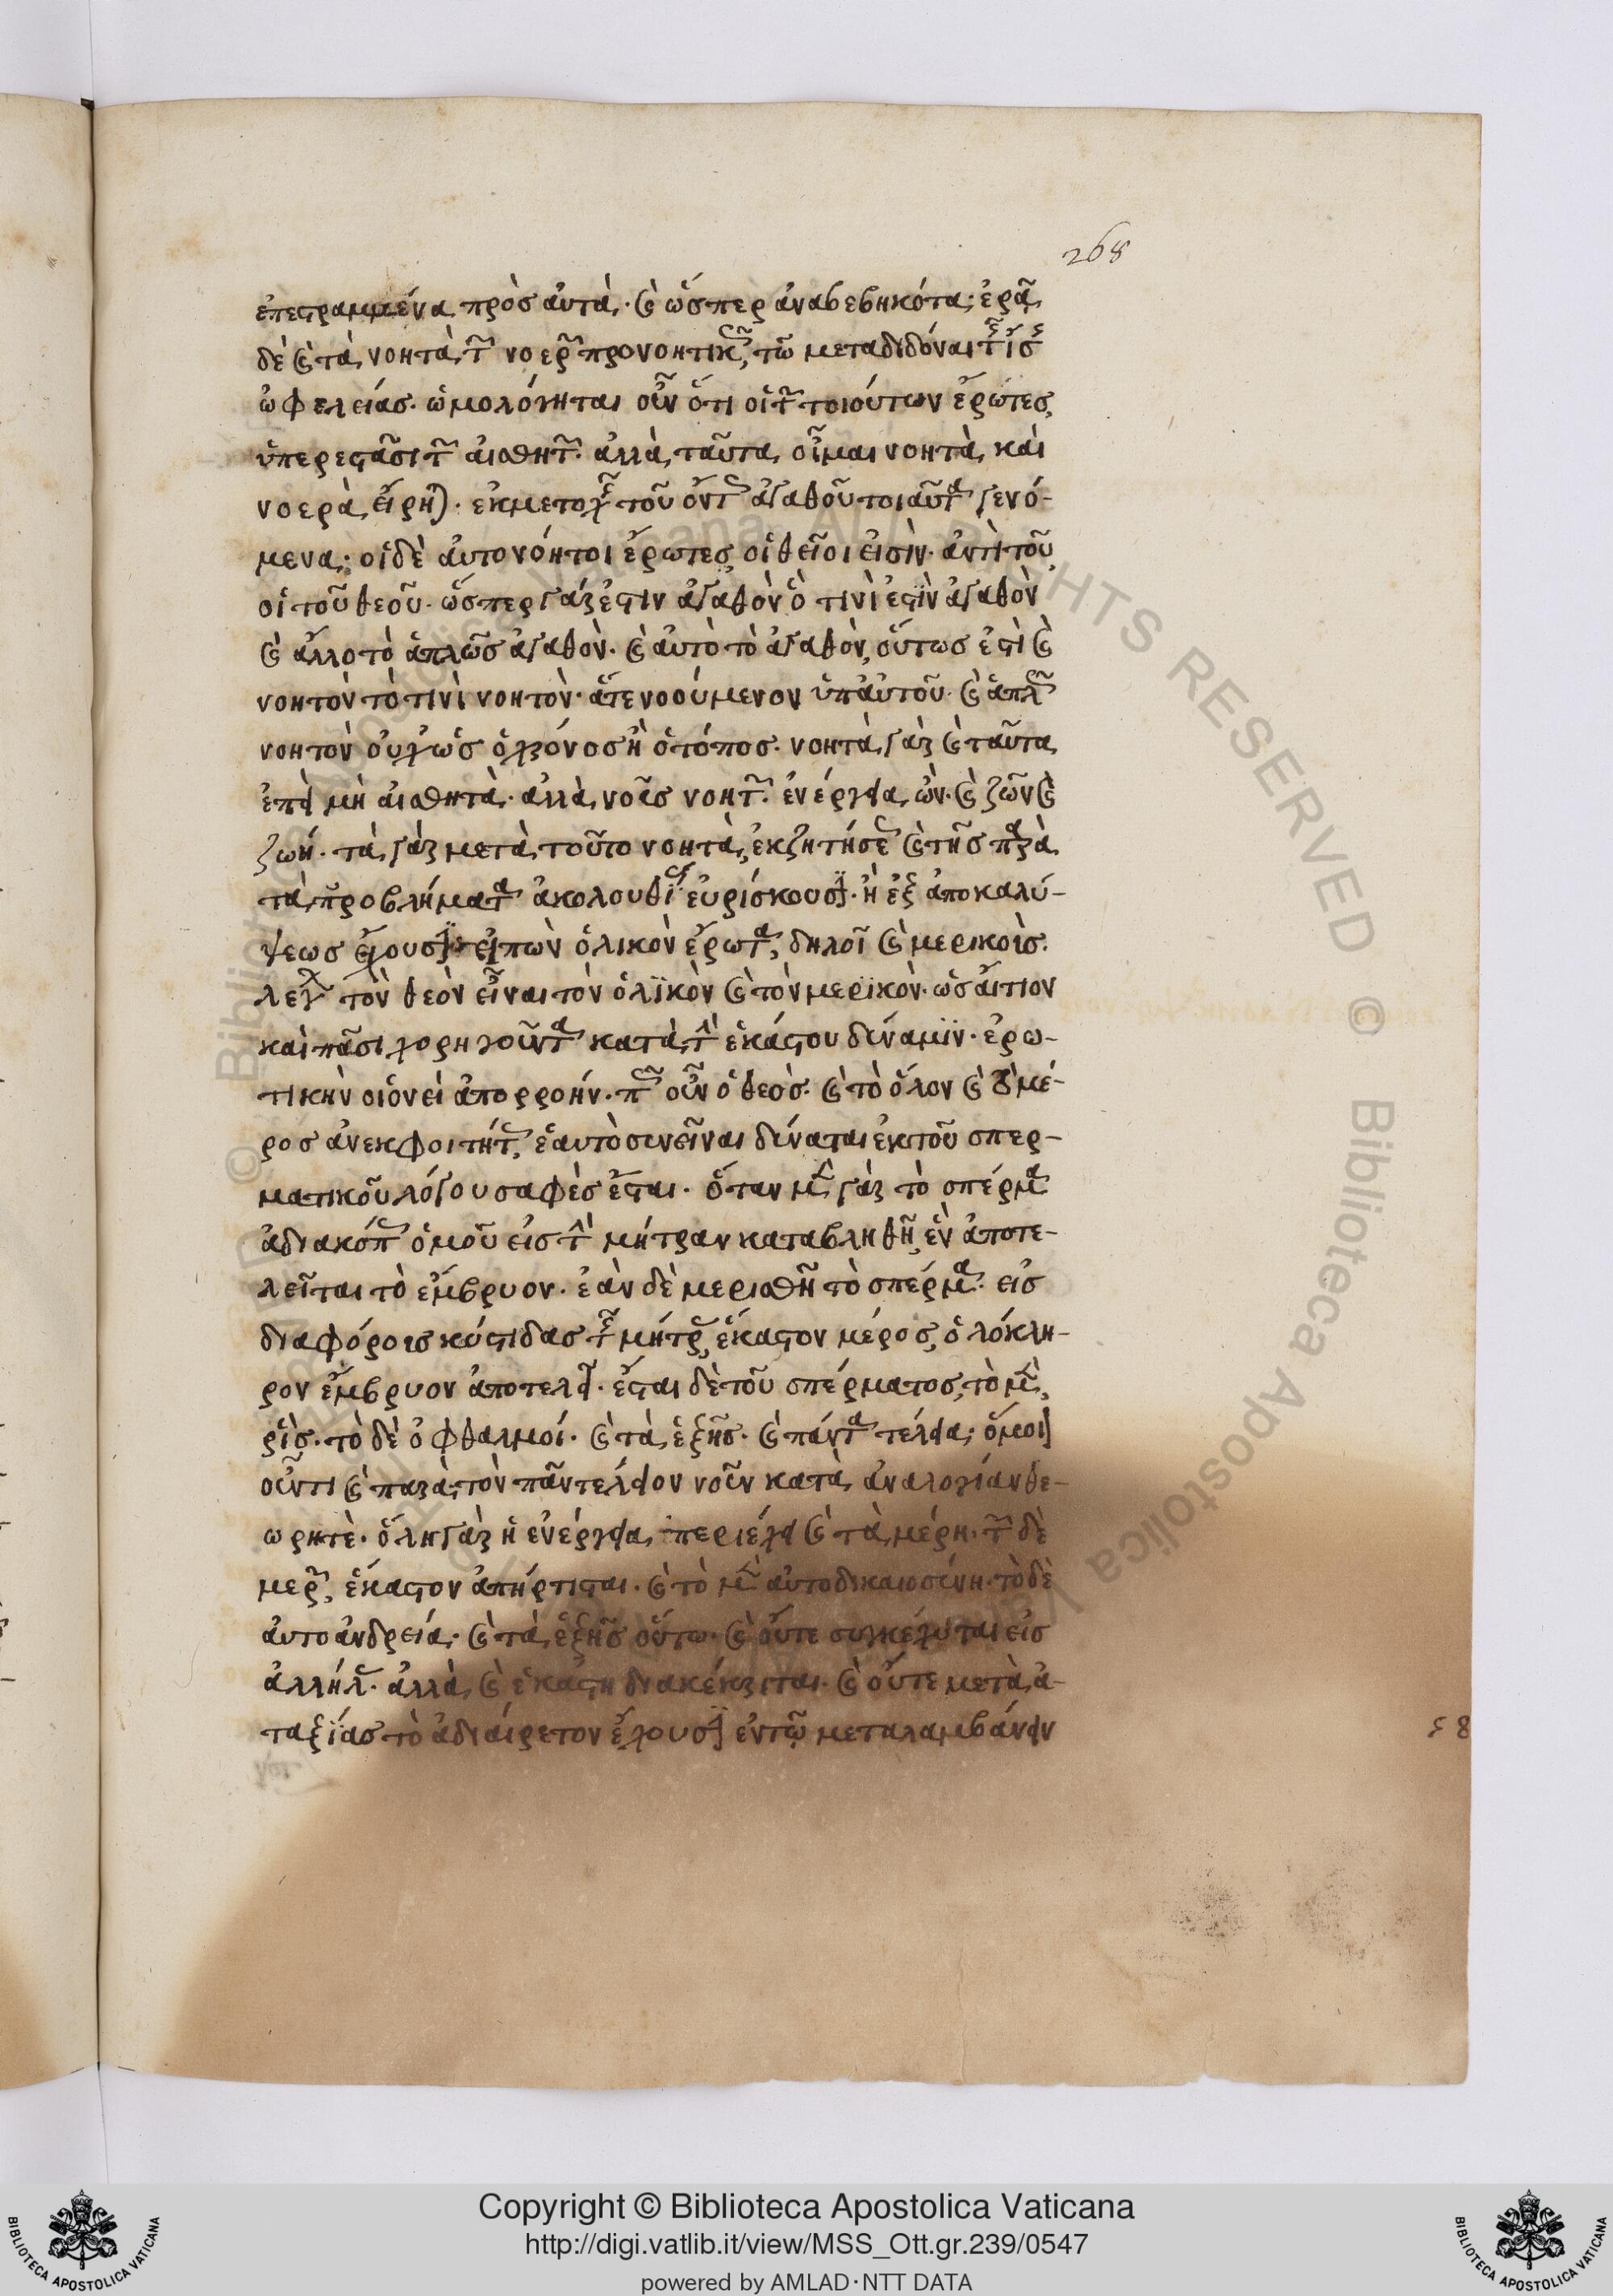 268
ἐπεστραμμένα πρὸς αὐτὰ· καὶ ὥσπερ ἀναβεβηκότα· ἐρᾷ
δὲ καὶ τὰ νοητὰ τῶν νοερῶν προνοητικῶς, τῷ μεταδιδόναι τῆς
ὠφελείας. ὡμολόγηται οὖν ὅτι οἱ τῶν τοιούτων ἔρωτες
ὑπερεστᾶσι τῶν αἰσθητῶν· ἀλλὰ ταῦτα οἶμαι νοητὰ καὶ
νοερὰ εἴρηται· ἐκ μετοχῆς τοῦ ὄντως ἀγαθοῦ τοιαῦτα γενό-
μενα· οἱ δὲ αὐτονόητοι ἔρωτες οἱ θεῖοι εἰσὶν· ἀντὶ τοῦ
οἱ τοῦ θεοῦ· ὥσπερ γάρ ἐστιν ἀγαθὸν ὅ τινὶ ἐστὶν ἀγαθὸν
καὶ ἄλλο τὸ ἁπλῶς ἀγαθὸν· καὶ αὐτὸ τὸ ἀγαθὸν, οὕτως ἐστὶ καὶ
νοητὸν τὸ τινὶ νοητὸν· ἅτε νοούμενον ὑπ αὐτοῦ· καὶ ἁπλῶς
νοητὸν οὐχ ὡς ὁ χρόνος ἢ ὁ τόπος· νοητὰ γὰρ καὶ ταῦτα
ἐπεὶ μὴ αἰσθητὰ· ἀλλὰ νοῦς νοητῶν· ἐνέργεια ὢν· καὶ ζῶν καὶ
ζωή· τὰ γὰρ μετὰ τοῦτο νοητὰ, ἐκζητήσεως καὶ τῆς παρὰ
τὰ προβλήματα ἀκολουθίας εὑρίσκουσιν· ἢ ἐξ ἀποκαλύ-
ψεως ἔχουσιν· εἰπὼν ὁλικὸν ἔρωτα, δηλοῖ καὶ μερικοὶς·
λέγει τὸν θεὸν εἶναι τὸν ὁλϊκὸν καὶ τὸν μερϊκὸν· ὡς αἴτιον
καὶ πᾶσι χορηγοῦντα κατὰ τὴν ἑκάστου δύναμϊν· ἐρω-
τικὴν οἱονεὶ ἀπορροήν· πῶς οὖν ὁ θεὸς· καὶ τὸ ὅλον καὶ τὸ μέ-
ρος ἀνεκφοιτήτως ἑαυτὸ συνεῖναι δύναται ἐκ τοῦ σπερ-
ματικοῦ λόγου σαφὲς ἔσται· ὅταν μὲν γὰρ τὸ σπέρμα
ἀδιακόπως ὁμοῦ εἰς τὴν μήτραν καταβληθῆ, ἓν ἀποτε-
λεῖται τὸ ἔμβρυον· ἐὰν δὲ μερισθῆ τὸ σπέρμα· εἰς
διαφόροις κύστιδας τῆς μήτρας, ἕκαστον μέρος, ὁλόκλη-
ρον ἔμβρυον ἀποτελεῖ· ἔσται δὲ τοῦ σπέρματος, τὸ μὲν,
ῥὶς· τὸ δὲ ὀφθαλμοί· καὶ τὰ ἑξῆς· καὶ πάντα τέλεια· ὅμοιον
οὖν τι καὶ παρὰ τὸν παντέλειον νοῦν κατὰ ἀναλογίαν θε-
ωρητὲ· ὅλη γὰρ ἡ ἐνέργεια περιέχει καὶ τὰ μέρη· τῶν δὲ
μερῶν, ἕκαστον ἀπήρτισται· καὶ τὸ μὲν αὐτοδικαιοσύνη· τὸ δὲ
αὐτοανδρεία· καὶ τὰ ἑξῆς οὕτω· καὶ οὔτε συγκέχυται εἰς
ἀλλήλας· ἀλλὰ καὶ ἑκάστη διακέκριται· καὶ οὔτε μετὰ ἀ-
ταξίας τὸ ἀδιαίρετον ἔχουσιν ἐν τῷ μεταλαμβάνειν
Copyright © Biblioteca Apostolica Vaticana
http://digi.vatlib.it/view/MSS_Ott.gr.239/0547
powered by AMLAD·NTT DATA
BIBLIOTECA APOSTOLICA VATICANA
BIBLIOTECA APOSTOLICA VATICANA